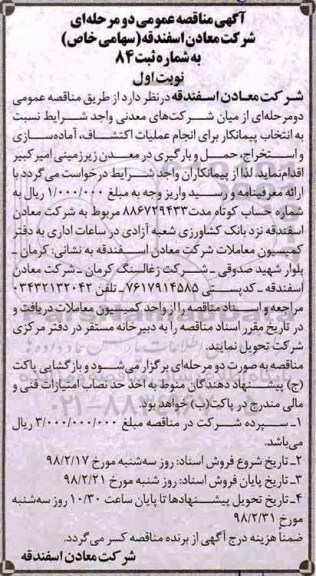 آگهی مناقصه عمومی دو مرحله‌ای
شرکت معادن اسفندقه (سهامی خاص)
به شماره ثبت ۸۴
نوبت اول
شرکت معادن اسفندقه در نظر دارد از طریق مناقصه عمومی
دو مرحله‌ای از میان شرکت‌های معدنی واجد شرایط نسبت
به انتخاب پیمانکار برای انجام عملیات اکتشاف، آماده‌سازی
و استخراج، حمل و بارگیری در معدن زیرزمینی امیرکبیر
اقدام نماید. لذا از پیمانکاران واجد شرایط درخواست می‌گردد با
ارائه معرفینامه و رسید واریز وجه به مبلغ ۱/۰۰۰/۰۰۰ ریال به
شماره حساب کوتاه مدت ۸۸۶۷۲۹۴۳۳ مربوط به شرکت معادن
اسفندقه نزد بانک کشاورزی شعبه آزادی در ساعات اداری به دفتر
کمیسیون معاملات شرکت معادن اسفندقه به نشانی: کرمان -
بلوار شهید صدوقی - شرکت زغالسنگ کرمان - شرکت معادن
اسفندقه - کدپستی ۷۶۱۷۹۱۴۵۸۵ - تلفن ۰۳۴۳۲۱۳۲۰۴۲
مراجعه و اسناد مناقصه را از واحد کمیسیون معاملات دریافت و
در تاریخ مقرر اسناد مناقصه را به دبیرخانه مستقر در دفتر مرکزی
شرکت تحویل نمایند.
مناقصه به صورت دو مرحله‌ای برگزار می‌شود و بازگشایی پاکت
(ج) پیشنهاد دهندگان منوط به اخذ حد نصاب امتیازات فنی و
مالی مندرج در پاکت (ب) خواهد بود.
۱- سپرده شرکت در مناقصه مبلغ ۳/۰۰۰/۰۰۰/۰۰۰ ریال
می‌باشد.
۲- تاریخ شروع فروش اسناد: روز سه‌شنبه مورخ ۹۸/۲/۱۷
۳- تاریخ پایان فروش اسناد: روز شنبه مورخ ۹۸/۲/۲۱
۴- تاریخ تحویل پیشنهادها تا پایان ساعت ۱۰/۳۰ روز سه‌شنبه
مورخ ۹۸/۲/۳۱
ضمناً هزینه درج آگهی از برنده مناقصه کسر می‌گردد.
شرکت معادن اسفندقه